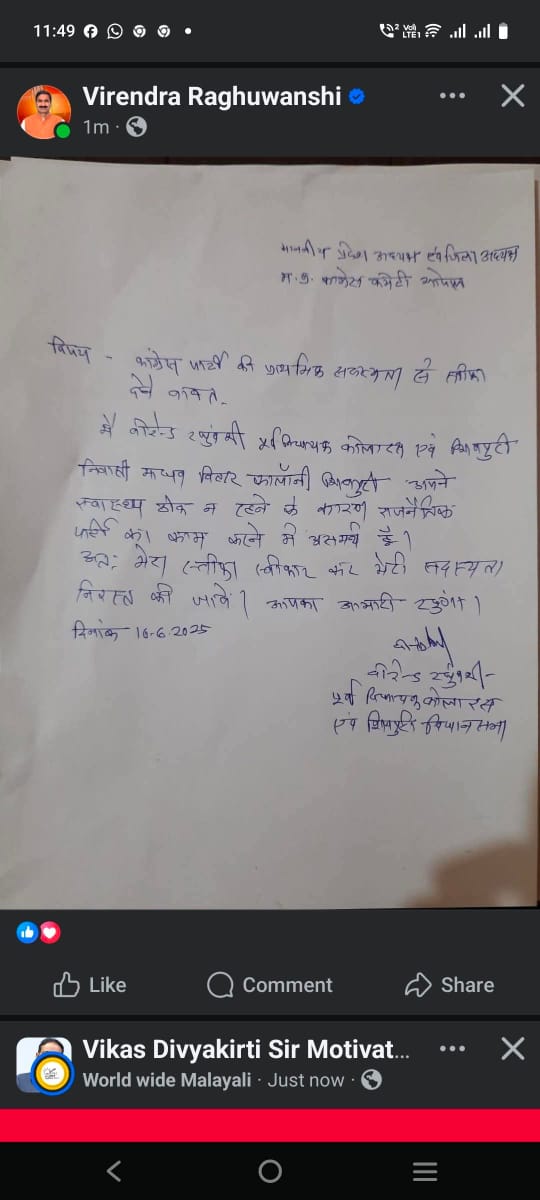 11:49
Vo)
LTE1
Virendra Raghuwanshi
1m ·
माननीय प्रदेश अध्यक्ष एवं जिला अध्यक्ष
म.प्र. कांग्रेस कमेटी भोपाल
विषय - कांग्रेस पार्टी की प्राथमिक सदस्यता से स्तीफा
देने बावत.
मैं वीरेन्द्र रघुवंशी पूर्व विधायक कोलारस एवं शिवपुरी
निवासी माधव विहार कॉलोनी शिवपुरी अपने
स्वास्थ्य ठीक न रहने के कारण राजनैतिक
पार्टी का काम करने में असमर्थ हूँ।
अतः मेरा स्तीफा स्वीकार कर मेरी सदस्यता
निरस्त की जावे। आपका आभारी रहूंगा।
दिनांक 16-6-2025
वीरेन्द्र रघुवंशी-
पूर्व विधायक कोलारस
एवं शिवपुरी विधानसभा
Like
Comment
Share
Vikas Divyakirti Sir Motivat...
World wide Malayali · Just now ·